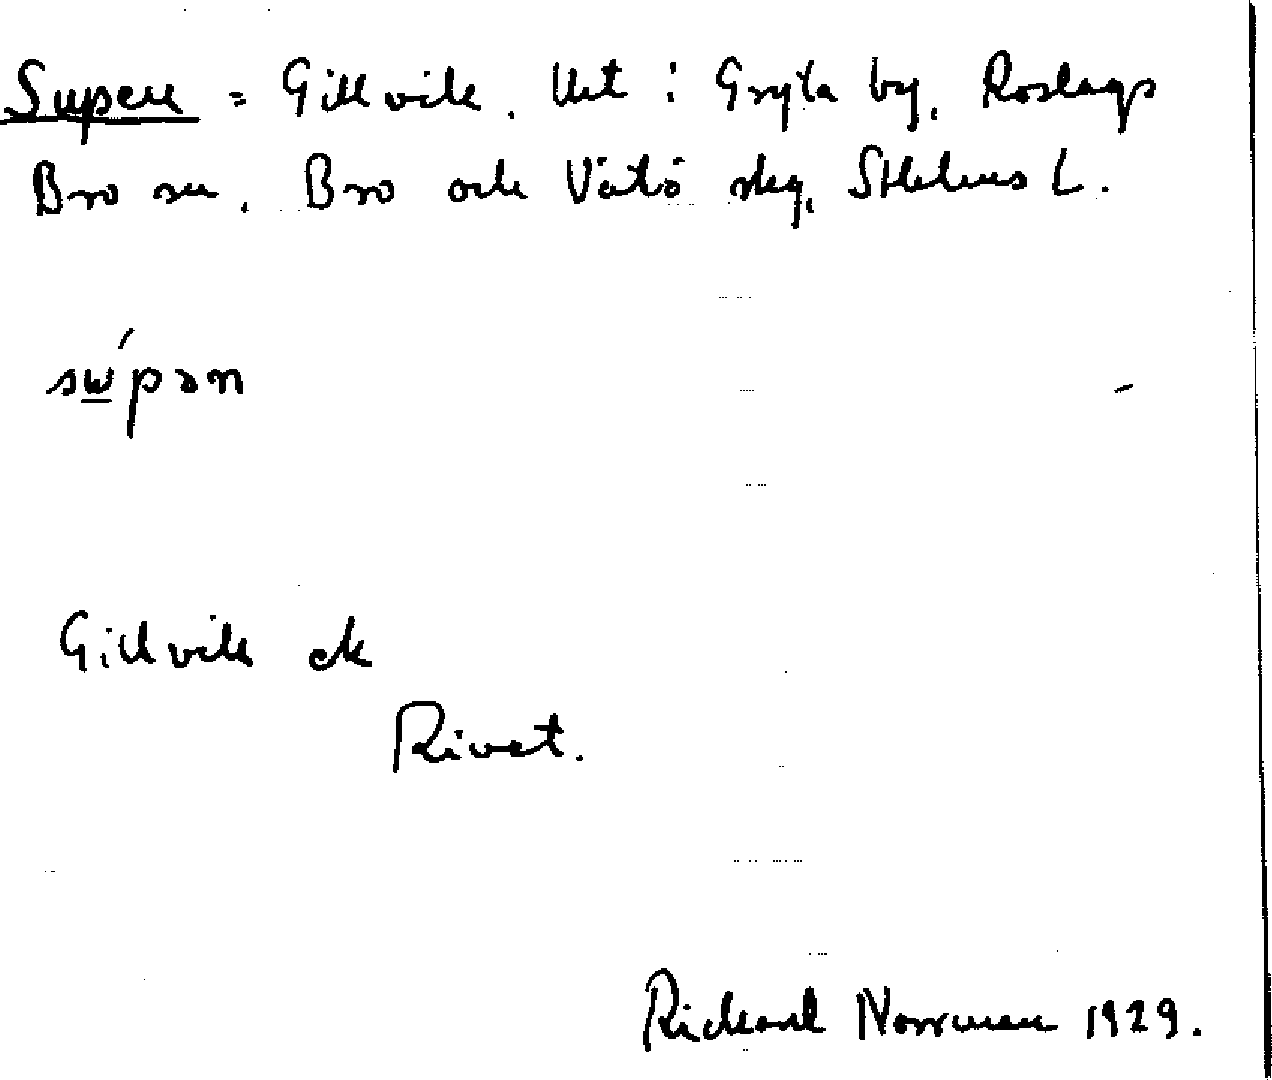 Supen = Gillvik. Ut i Gryta by, Roslags
Bro sn. Bro och Vätö skg, Sthlms L.
sẃpən
Gillvik ek
Rivet.
Richard Norrman 1929.